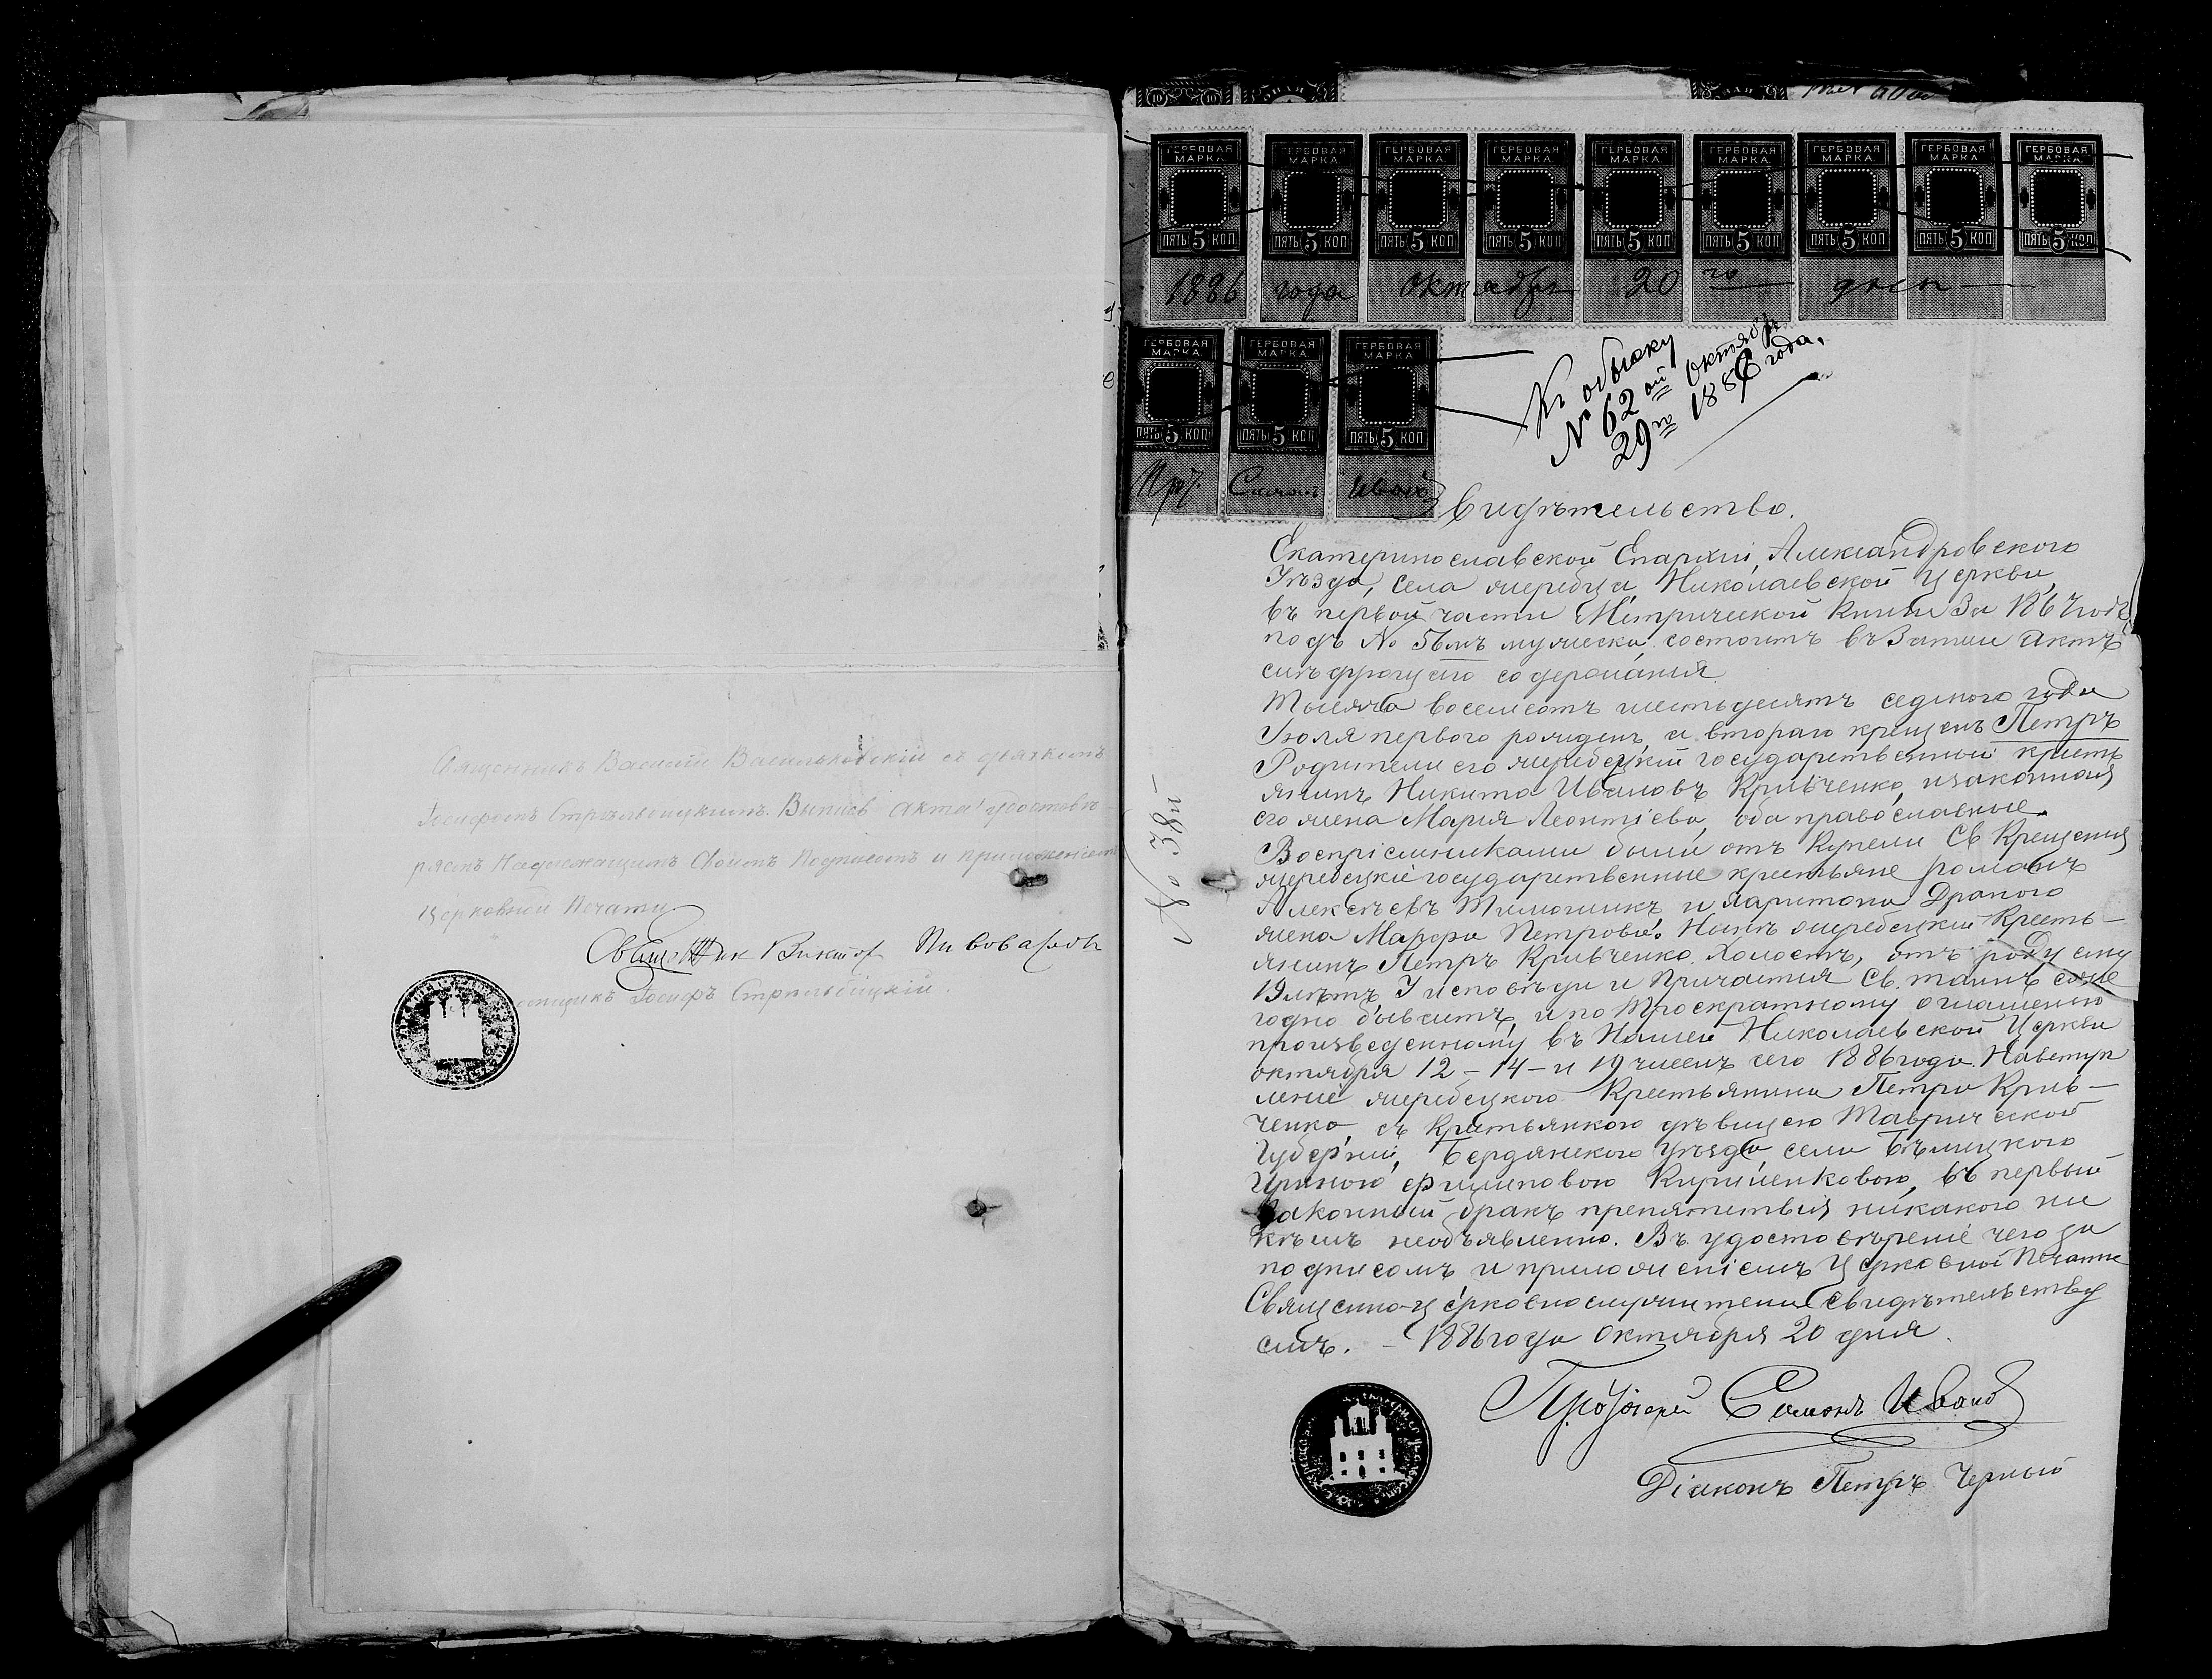 Священникъ Василій Васильковскій съ дьячкомъ
Іосифомъ Стрѣльбицкимъ. Выпись акта удостовѣ-
ряемъ надлежащимъ своимъ подписомъ и приложеніемъ
церковной печати.
Священник Виктор Пивоваров
Іосифъ Стрѣльбицкій.
ГЕРБОВАЯ МАРКА. ГЕРБОВАЯ МАРКА. ГЕРБОВАЯ МАРКА. ГЕРБОВАЯ МАРКА. ГЕРБОВАЯ МАРКА. ГЕРБОВАЯ МАРКА. ГЕРБОВАЯ МАРКА. ГЕРБОВАЯ МАРКА. ГЕРБОВАЯ МАРКА.
ПЯТЬ 5 КОП ПЯТЬ 5 КОП ПЯТЬ 5 КОП ПЯТЬ 5 КОП ПЯТЬ 5 КОП ПЯТЬ 5 КОП ПЯТЬ 5 КОП ПЯТЬ 5 КОП ПЯТЬ 5 КОП
1886 года Октября 20 го дня
ГЕРБОВАЯ МАРКА. ГЕРБОВАЯ МАРКА. ГЕРБОВАЯ МАРКА.
ПЯТЬ 5 КОП ПЯТЬ 5 КОП ПЯТЬ 5 КОП
Къ обыску
№ 62 ой Октября
29 го 1886 года.
Свидѣтельство.
Екатеринославской Епархіи, Александровского
Уѣзда, села жеребца, Николаевской церкви,
въ первой части Метрической книги за 1867 годъ
подъ № 56мъ мужеска, состоитъ въ записи актъ
слѣдующего содержанія.
Тысяча восемсотъ шестьдесятъ седмого года
Іюля первого рожденъ, а второго крещенъ Петръ
Родители его жеребецкій государственный кресть
янинъ Никита Ивановъ Кривченко, и законная
его жена Марія Леонтіева, оба православные.
Воспріемниками были отъ Купели Св. Крещенія
жеребецкіе государственные крестьяне Романъ
Алексѣевъ и Харитона Драного
жена Марфа Петрова. Нынѣ жеребецкій Кресть-
янинъ Петръ Кривченко. Холостъ, отъ роду ему
19 лѣтъ, У исповѣди и Причастія Св. таинъ еже
годно бываетъ, и по Троекратному оглашенію
произведенному въ Нашей Николаевской Церкви
октября 12-14-и 19 чиселъ сего 1886 года. На вступ
леніе жеребецкого Крестьянина Петра Крив-
ченко, съ Крестьянкою дѣвицею Таврической
Губерніи, Бердянского уѣзда села
Ириною Филиповою въ первый
законный бракъ препятствія никакого ни
кѣмъ необъявленно. Въ удостовѣреніе чего за
подписомъ и приложеніемъ Церковной Печати
Священно-церковнослужители свидѣтельству
емъ. - 1886 года Октября 20 дня.
Протоіерей Симонъ Ивановъ
Діаконъ Петръ Черный